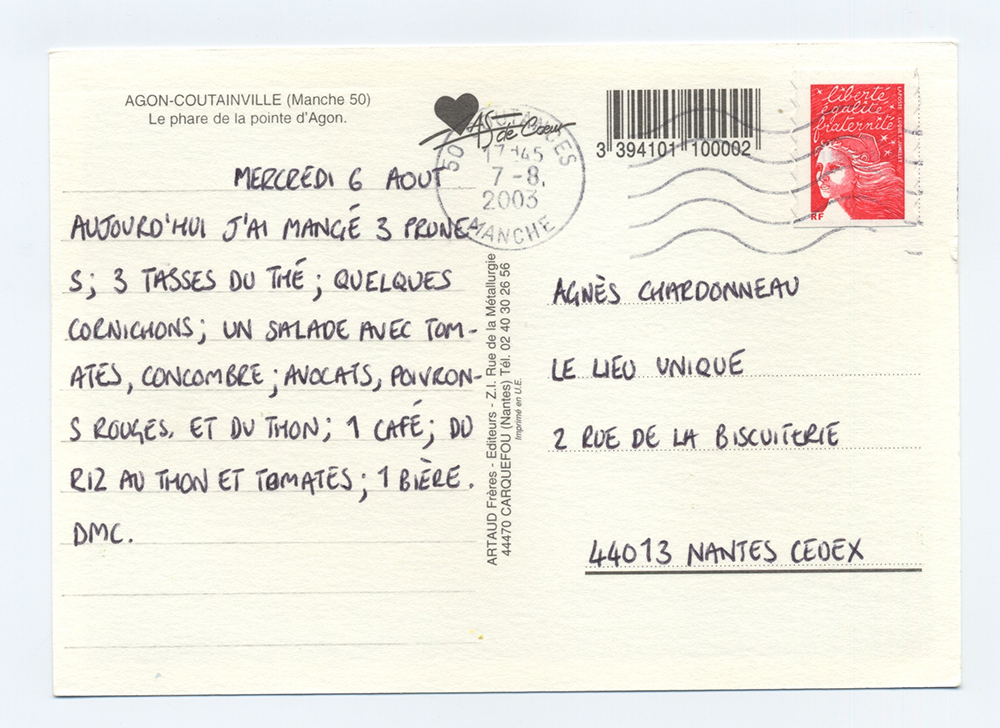 AGON-COUTAINVILLE (Manche 50)
Le phare de la pointe d'Agon.
AS de Cœur
3 394101 100002
50 COUTANCES
17H45
7-8.
2003
MANCHE
liberté
égalité
fraternité
RF
MERCREDI 6 AOUT
AUJOURD'HUI J'AI MANGÉ 3 PRUNEA
S; 3 TASSES DU THÉ; QUELQUES
CORNICHONS; UN SALADE AVEC TOM-
ATES, CONCOMBRE; AVOCATS, POIVRON-
S ROUGES. ET DU THON; 1 CAFÉ; DU
RIZ AU THON ET TOMATES; 1 BIÈRE.
DMC.
ARTAUD Frères - Editeurs - Z.I. Rue de la Métallurgie
44470 CARQUEFOU (Nantes) Tél. 02 40 30 26 56
Imprimé en U.E.
AGNÈS CHARDONNEAU
LE LIEU UNIQUE
2 RUE DE LA BISCUITERIE
44013 NANTES CEDEX